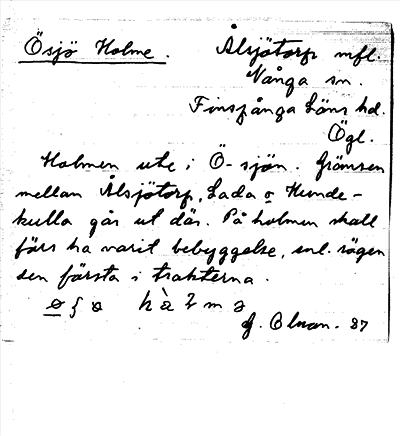 Ösjö Holme. Ålsjötorp mfl.
Vånga sn.
Finspånga Läns hd.
Ögl.
Holmen ute i Ö-sjön. Gränsen
mellan Ålsjötorp, Lada o Hunde-
kulla går ut där. På holmen skall
förr ha varit bebyggelse, enl. sägen
den första i trakterna.
87